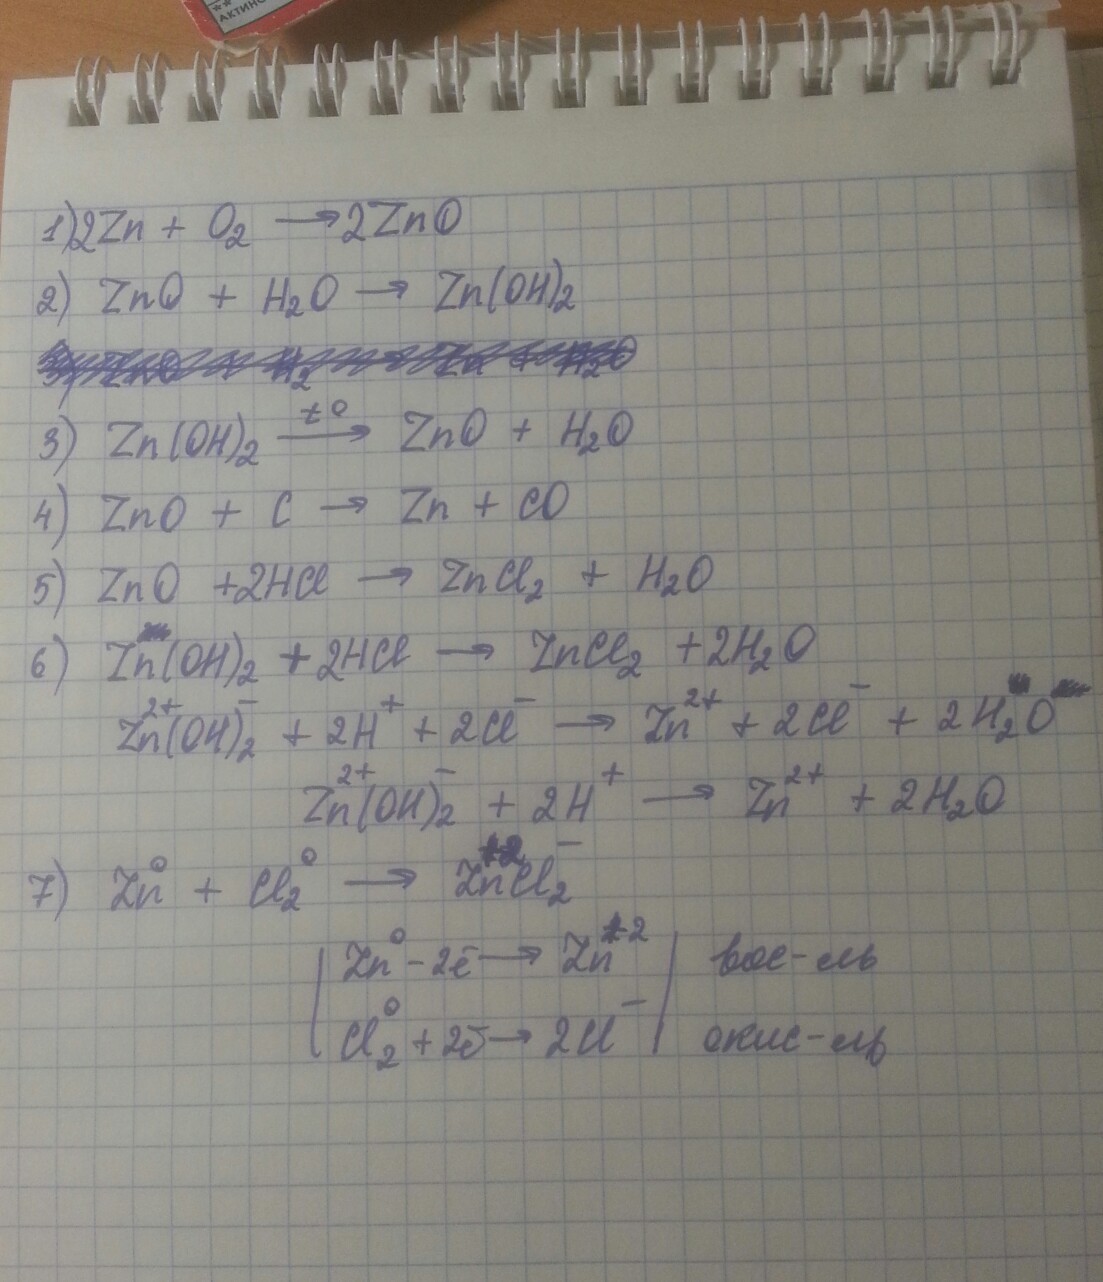 АКТИНО
1) 2Zn + O₂ → 2ZnO
2) ZnO + H₂O → Zn(OH)₂
3) Zn(OH)₂ t° → ZnO + H₂O
4) ZnO + C → Zn + CO
5) ZnO + 2HCl → ZnCl₂ + H₂O
6) Zn(OH)₂ + 2HCl → ZnCl₂ + 2H₂O
Zn²⁺(OH)₂⁻ + 2H⁺ + 2Cl⁻ → Zn²⁺ + 2Cl⁻ + 2H₂O
Zn²⁺(OH)₂⁻ + 2H⁺ → Zn²⁺ + 2H₂O
7) Zn⁰ + Cl₂⁰ → Zn⁺²Cl₂⁻
Zn⁰ - 2ē → Zn⁺² | вос-ль
Cl₂⁰ + 2ē → 2Cl⁻ | окис-ль